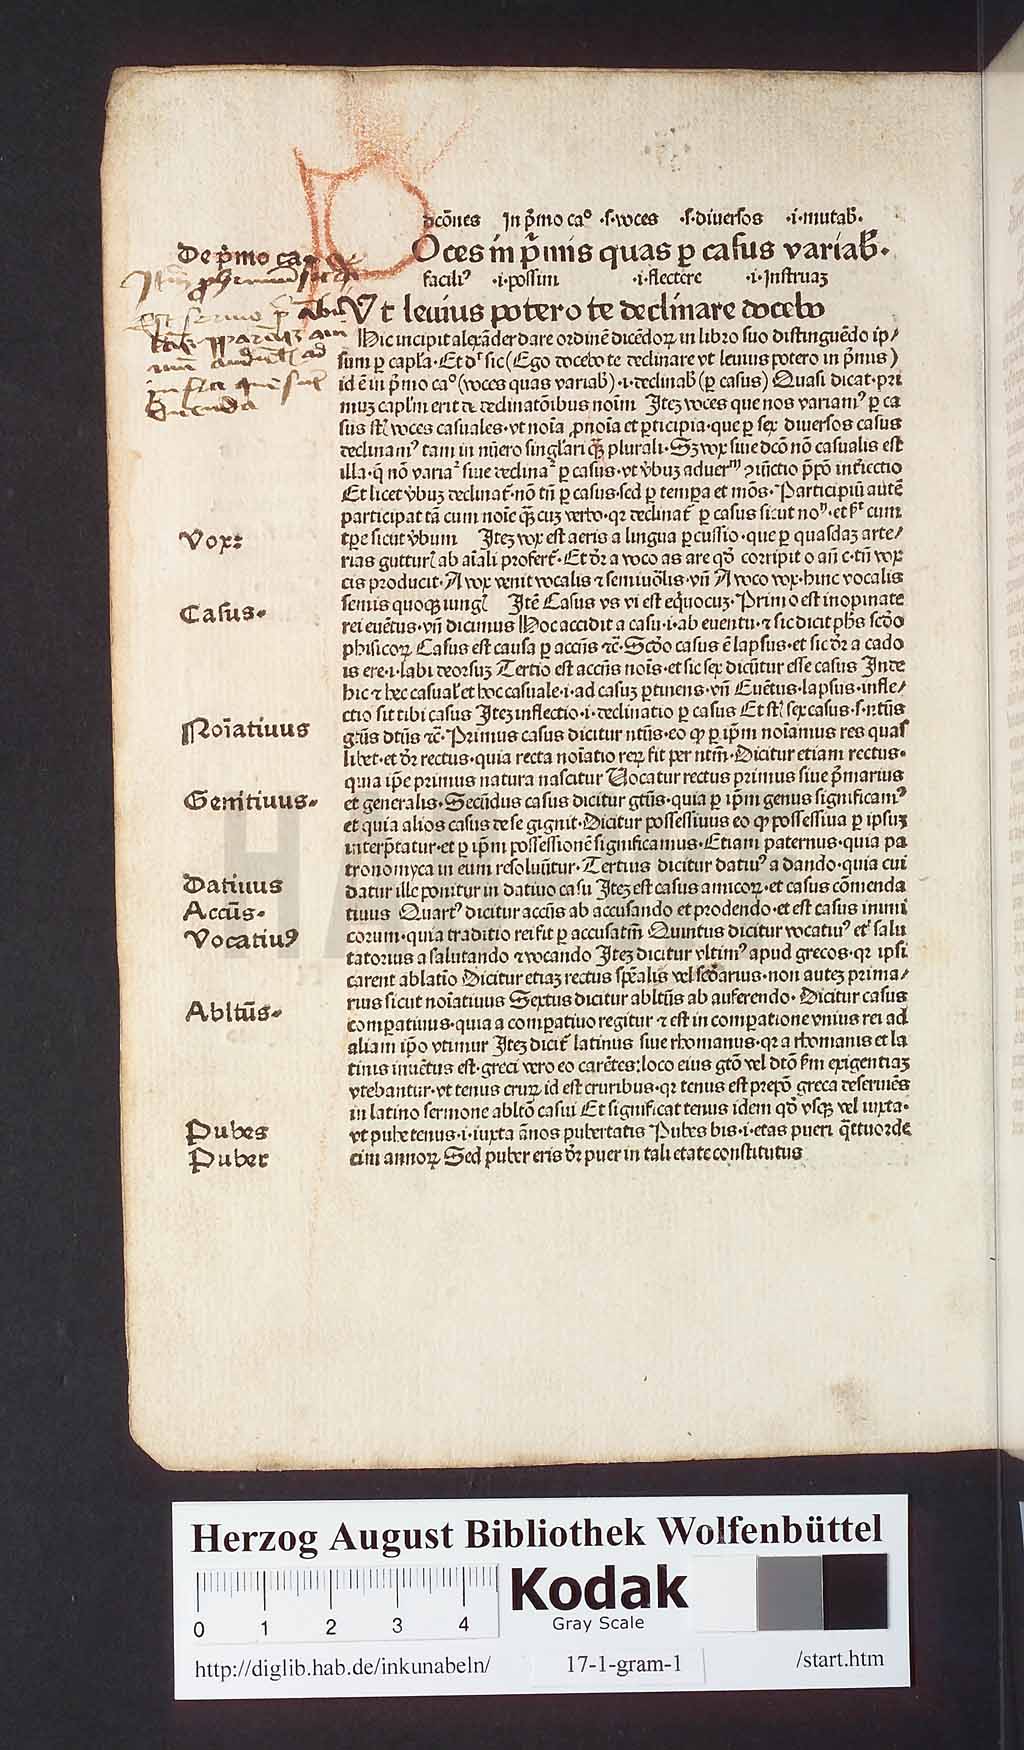 dcōnes In p̄mo ca° ·s·voces ·s·diuersos ·i·mutab̄·
Oces in p̄mis quas ꝑ casus variab̄·
De p̄mo ca
faciliꝰ ·i·possim ·i·flectere ·i·Instruaꝫ
Vt leuius potero te declinare docebo
Hic incipit alexāder dare ordinē dicēdoꝝ in libro suo distinguēdo ip/
sum ꝑ capl'a· Et dr̄ sic (Ego docebo te declinare vt leuius potero in p̄mis)
id ē in p̄mo ca° (voces quas variab̄)·i·declinab̄ (ꝑ casus) Quasi dicat·pri
muꝫ capl'm erit de declinatōibus noīm Iteꝫ voces que nos variamꝰ ꝑ ca
sus st̄ voces casuales·vt noīa ꝓnoīa et ꝑticipia·que ꝑ sex diuersos casus
declinamꝰ tam in nūero singl'ari qꝫ̄ plurali·Sꝫ vox siue dcō nō casualis est
illa·q̄ nō variaᷣ siue declinaᷣ ꝑ casus·vt v̄buꝫ aduerᵐ ↄiūctio p̄pō int̄iectio
Et licet v̄buꝫ declinat̄·nō tn̄ ꝑ casus·sed ꝑ tempora et mōs·Participiū autē
participat tā cum noīe qꝫ̄ cuꝫ verbo·qꝛ declinat̄ ꝑ casus sicut noᷠ·et sꝉ cum
tꝑe sicut v̄bum Iteꝫ vox est aeris a lingua ꝑcussio·que ꝑ quasdaꝫ arte/
Vox:
rias guttur̄ ab aīali profert̄·Et dr̄ a voco as are qd̓ corripit o an̄ c·tn̄ vox
cis producit·A vox venit vocalis ⁊ semiuōlis·vn̄ A voco vox·hinc vocalis
semis quoqꝫ iungł Itē Casus vs vi est eq̄uocuꝫ·Primo est inopinate
Casus·
rei euētus·vn̄ dicimus Hoc accidit a casu·i·ab euentu·⁊ sic dicit ph̄s scd̓o
phisicoꝝ Casus est causa ꝑ accn̄s ⁊c̄·Scd̓o casus ē lapsus·et sic dr̄ a cado
is ere·i·labi deorsuꝫ Tertio est accn̄s noīs·et sic sex dicūtur esse casus Inde
hic ⁊ hec casual' et hoc casuale·i·ad casuꝫ ꝑtinens·vn̄ Euētus·lapsus·infle/
ctio sit tibi casus Iteꝫ inflectio·i·declinatio ꝑ casus Et st̄ sex casus·s·ntūs
Noīatiuus
gtūs dtūs ⁊c̄·Primus casus dicitur ntūs·eo ꝙ ꝑ ip̄m noīamus res quas
libet·et dr̄ rectus·quia recta noīatio reꝝ fit per ntm̄·Dicitur etiam rectus·
quia ip̄e primus natura nascitur Uocatur rectus primus siue p̄marius
Genitiuus·
et generalis·Secūdus casus dicitur gtūs·quia ꝑ ip̄m genus significamꝰ
et quia alios casus de se gignit·Dicitur possessiuus eo ꝙ possessiua ꝑ ipsuꝫ
interp̄tatur·et ꝑ ip̄m possessionē significamus·Etiam paternus·quia pa
tronomyca in eum resoluūtur·Tertius dicitur datiuꝰ a dando·quia cui
Datiuus
datur ille ponitur in datiuo casu Iteꝫ est casus amicoꝝ·et casus cōmenda
Accūs·
tiuus Quartꝰ dicitur accūs ab accusando et prodendo·et est casus inimi
Vocatiuꝰ
corum·quia traditio rei fit ꝑ accusatm̄ Quintus dicitur vocatiuꝰ et salu
tatorius a salutando ⁊ vocando Iteꝫ dicitur vltimꝰ apud grecos·qꝛ ipsi
carent ablatīo Dicitur etiaꝫ rectus sp̄ealis vel sed̄arius·non auteꝫ prima/
rius sicut noīatiuus Sextus dicitur abltūs ab auferendo· Dicitur casus
Abltūs·
comꝑatiuus·quia a comꝑatiuo regitur ⁊ est in comꝑatione vnius rei ad
aliam ip̄o vtimur Iteꝫ dicit̄ latinus siue rhomanus·qꝛ a rhomanis et la
tinis inuētus est·greci vero eo carētes:loco eius gtō vel dtō sm̄ exigentiaꝫ
vtebantur·vt tenus cruꝝ id est cruribus·qꝛ tenus est prepō greca deseruiēs
in latino sermone abltō casui Et significat tenus idem qd̓ vsqꝫ vel iuxta·
Pubes
vt pube tenus·i·iuxta ānos pubertatis Pubes bis·i·etas pueri q̄ttuorde
Puber
cim annoꝝ Sed puber eris dr̄ puer in tali etate constitutus
Herzog August Bibliothek Wolfenbüttel
0 1 2 3 4
Kodak
Gray Scale
http://diglib.hab.de/inkunabeln/ 17-1-gram-1 /start.htm